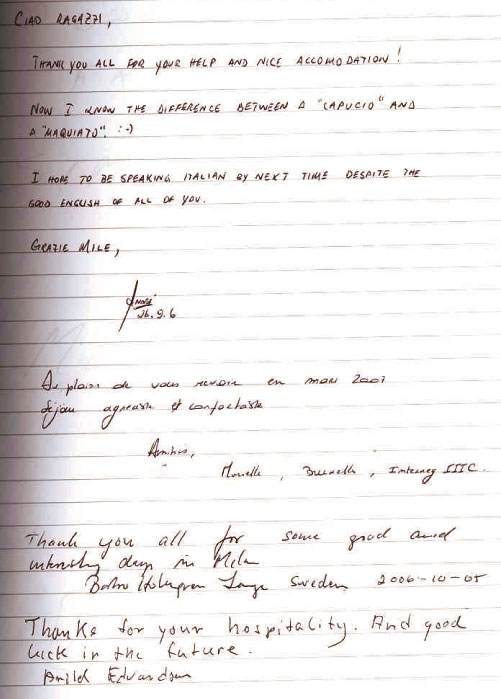 CIAO RAGAZZI,
THANK YOU ALL FOR YOUR HELP AND NICE ACCOMODATION!
NOW I KNOW THE DIFFERENCE BETWEEN A "CAPUCIO" AND
A "MAQUIATO". :-)
I HOPE TO BE SPEAKING ITALIAN BY NEXT TIME DESPITE THE
GOOD ENGLISH OF ALL OF YOU.
GRAZIE MILE,
26.9.6
Au plaisir de vous revoir en mars 2007
séjour agréable et confortable
Amitiés,
Brunelle, Interreg IIIC.
Thank you all for some good and
intensive days in Milan
Sweden 2006-10-05
Thanks for your hospitality. And good
luck in the future.